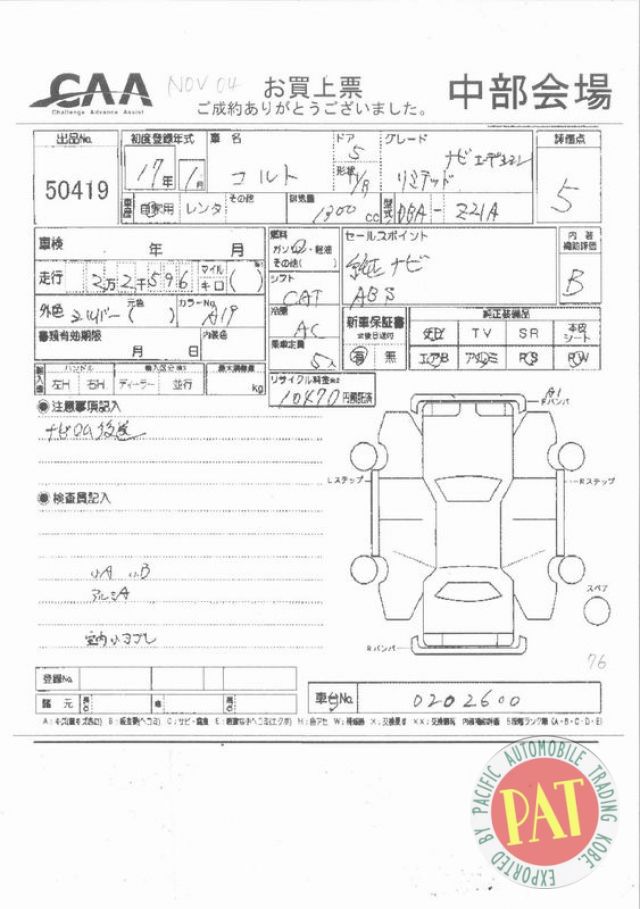 CAA NOV 04 お買上票 中部会場
Challenge Advance Assist
ご成約ありがとうございました。
出品No. 初度登録年式 車名 ドア グレード 評価点
50419 17年 1月 コルト 5 ナビエディション リミテッド 5
形状 H/B
車歴 自家用 レンタ その他 排気量 1300 cc 型式 DBA-Z21A
車検 年 月 燃料 ガソリン・軽油 その他( ) セールスポイント 内装補助評価
純正ナビ B
走行 2万2千596 マイル キロ ( ) シフト CAT ABS
外色 シルバー 元色 ( ) カラーNo. A19 冷房 AC 新車保証書 純正装備品
書類有効期限 内装色 乗車定員 5人 有 無 ナビ TV SR 本皮シート
月 日 エアB アルミ PS PW
輸入車 ハンドル 左H 右H 輸入区分 ディーラー 並行 最大積載量 kg リサイクル料金 10470 円預託済
◉注意事項記入 A1
Fバンパ
ナビROM後送
Lステップ Rステップ
◉検査員記入
小A 小B
アルミA
スペア
室内小ヨゴレ
Rバンパ
76
登録No.
諸元 長 幅 高 車台No. 0202600
PAT
EXPORTED BY PACIFIC AUTOMOBILE TRADING KOBE.